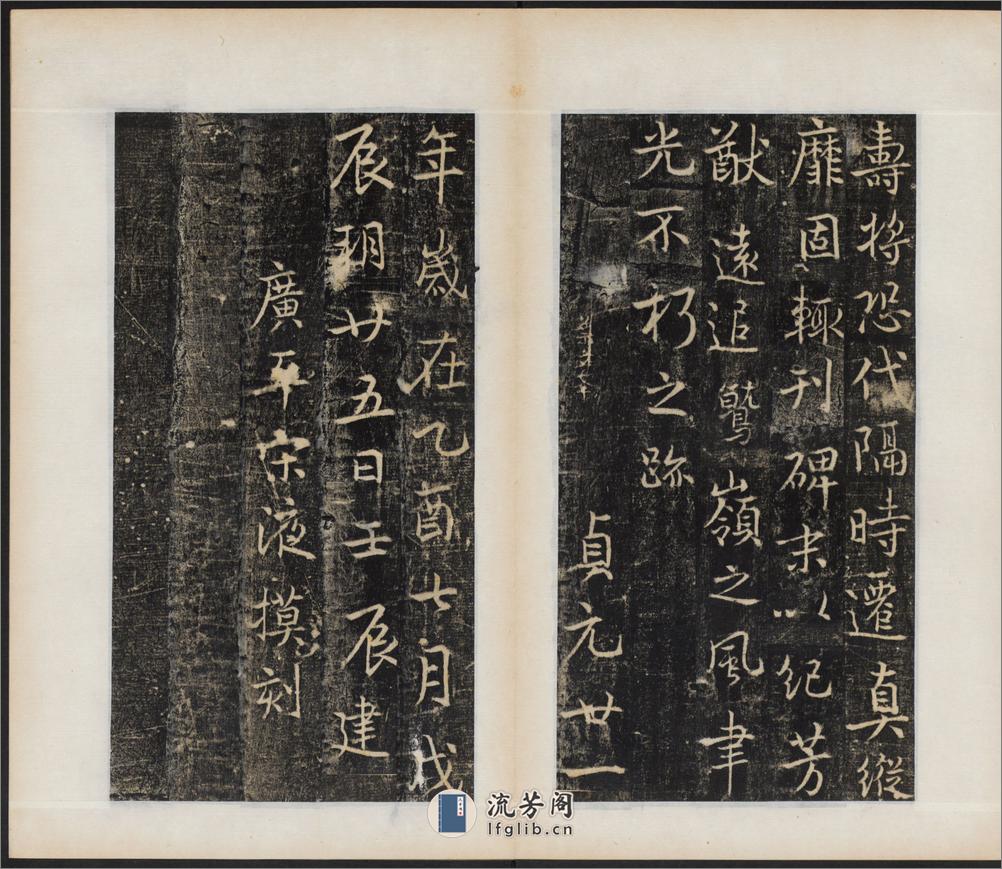 壽將恐代隔時遷真縱
靡固輙刊碑末以紀芳
猷遠追鷲嶺之風聿
光不朽之跡
貞元廿一
年歲在乙酉七月戊
辰朔廿五日壬辰建
廣平宋液摸刻
流芳阁
lfglib.cn